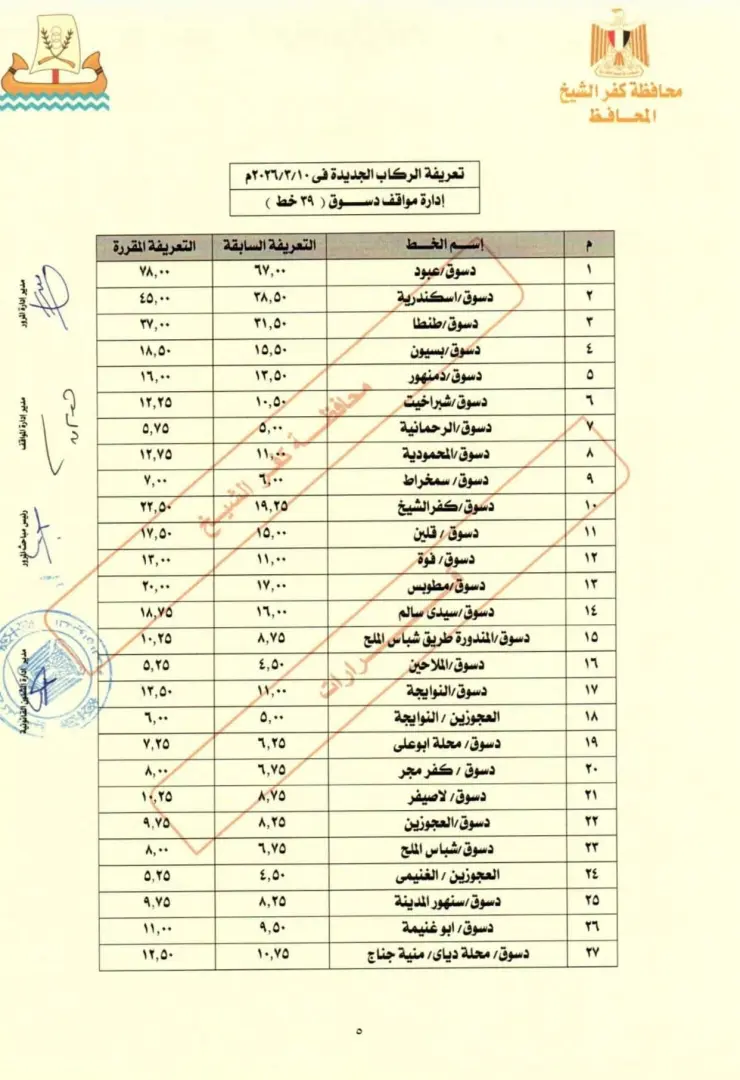 محافظة كفر الشيخ
المحافظ
تعريفة الركاب الجديدة فى ٢٠٢٦/٣/١٠م
إدارة مواقف دسوق ( ٣٩ خط )
م إسم الخط التعريفة السابقة التعريفة المقررة
١ دسوق/عبود ٦٧,٠٠ ٧٨,٠٠
٢ دسوق/اسكندرية ٣٨,٥٠ ٤٥,٠٠
٣ دسوق/طنطا ٣١,٥٠ ٣٧,٠٠
٤ دسوق/بسيون ١٥,٥٠ ١٨,٥٠
٥ دسوق/دمنهور ١٣,٥٠ ١٦,٠٠
٦ دسوق/شبراخيت ١٠,٥٠ ١٢,٢٥
٧ دسوق/الرحمانية ٥,٠٠ ٥,٧٥
٨ دسوق/المحمودية ١١,٠٠ ١٢,٧٥
٩ دسوق/ سمخراط ٦,٠٠ ٧,٠٠
١٠ دسوق/كفرالشيخ ١٩,٢٥ ٢٢,٥٠
١١ دسوق / قلين ١٥,٠٠ ١٧,٥٠
١٢ دسوق/ فوة ١١,٠٠ ١٣,٠٠
١٣ دسوق/مطوبس ١٧,٠٠ ٢٠,٠٠
١٤ دسوق/سيدى سالم ١٦,٠٠ ١٨,٧٥
١٥ دسوق/المندورة طريق شباس الملح ٨,٧٥ ١٠,٢٥
١٦ دسوق/الملاحين ٤,٥٠ ٥,٢٥
١٧ دسوق/النوايجة ١١,٠٠ ١٢,٥٠
١٨ العجوزين / النوايجة ٥,٠٠ ٦,٠٠
١٩ دسوق/ محلة ابوعلى ٦,٢٥ ٧,٢٥
٢٠ دسوق / كفر مجر ٦,٧٥ ٨,٠٠
٢١ دسوق/ لاصيفر ٨,٧٥ ١٠,٢٥
٢٢ دسوق/العجوزين ٨,٢٥ ٩,٧٥
٢٣ دسوق/شباس الملح ٦,٧٥ ٨,٠٠
٢٤ العجوزين / الغنيمى ٤,٥٠ ٥,٢٥
٢٥ دسوق/سنهور المدينة ٨,٢٥ ٩,٧٥
٢٦ دسوق/ ابو غنيمة ٩,٥٠ ١١,٠٠
٢٧ دسوق/ محلة دياى/ منية جناج ١٠,٧٥ ١٢,٥٠
مدير ادارة المرور
مدير ادارة المواقف
رئيس مباحث المرور
مدير ادارة الشئون القانونية
محافظة كفر الشيخ
٥